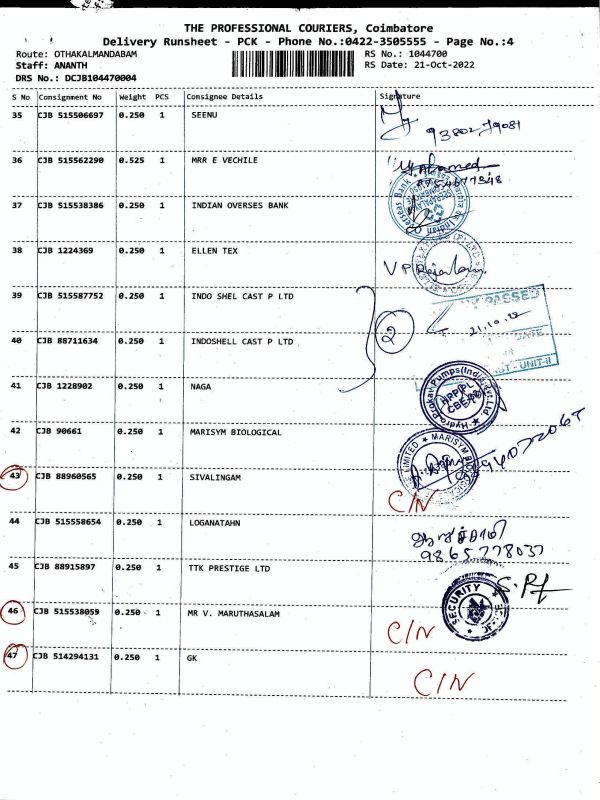 THE PROFESSIONAL COURIERS, Coimbatore
Delivery Runsheet - PCK - Phone No.:0422-3505555 - Page No.:4
Route: OTHAKALMANDABAM RS No.: 1044700
Staff: ANANTH RS Date: 21-Oct-2022
DRS No.: DCJB104470004
S No Consignment No Weight PCS Consignee Details Signature
35 CJB 515506697 0.250 1 SEENU
93802 79081
36 CJB 515562290 0.525 1 MRR E VECHILE
37 CJB 515538386 0.250 1 INDIAN OVERSES BANK
38 CJB 1224369 0.250 1 ELLEN TEX
39 CJB 515587752 0.250 1 INDO SHEL CAST P LTD
PASSED
21.10.22
40 CJB 88711634 0.250 1 INDOSHELL CAST P LTD 2
DATE
UNIT-II
41 CJB 1228902 0.250 1 NAGA
Hydro Prokav Pumps (India) Pvt. Ltd
42 CJB 90661 0.250 1 MARISYM BIOLOGICAL
LIMITED ★ MARISYM BIOLOGICAL
43 CJB 88960565 0.250 1 SIVALINGAM C/N
44 CJB 515558654 0.250 1 LOGANATAHN
45 CJB 88915897 0.250 1 TTK PRESTIGE LTD
SECURITY
46 CJB 515538059 0.250 1 MR V. MARUTHASALAM C/N
47 CJB 514294131 0.250 1 GK C/N